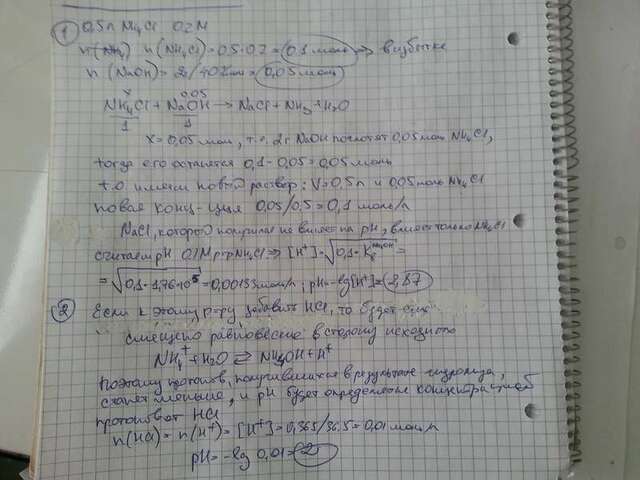 ① 0,5л NH₄Cl 0.2M
n(NH₄) n(NH₄Cl) = 0.5·0.2 = 0,1 моль ⇒ в избытке
n(NaOH) = 2г/40 = 0,05 моль
x 0.05
NH₄Cl + NaOH → NaCl + NH₃ + H₂O
1 1
x = 0,05 моль, т.е. 2г NaOH поглотят 0,05 моль NH₄Cl,
тогда его останется 0,1 - 0,05 = 0,05 моль
т.о. имеем новый раствор: V = 0,5л и 0,05 моль NH₄Cl
новая конц-ция 0.05/0.5 = 0,1 моль/л
NaCl, который получился не влияет на pH, влияет только NH₄Cl
считаем pH 0.1M р-р NH₄Cl ⇒ [H⁺] = √0,1·K =
= √0,1·1,76·10⁻⁵ = 0,00133 моль/л; pH = -lg[H⁺] = 2,87
② Если к этому р-ру добавить HCl, то будет
смещено равновесие в сторону исходного
NH₄⁺ + H₂O ⇄ NH₄OH + H⁺
Поэтому протонов, получившихся в результате гидролиза,
станет меньше, и pH будет определяться концентрацией
протонов от HCl
n(HCl) = n(H⁺) = [H⁺] = 0,365/36.5 = 0,01 моль/л
pH = -lg 0,01 = 2